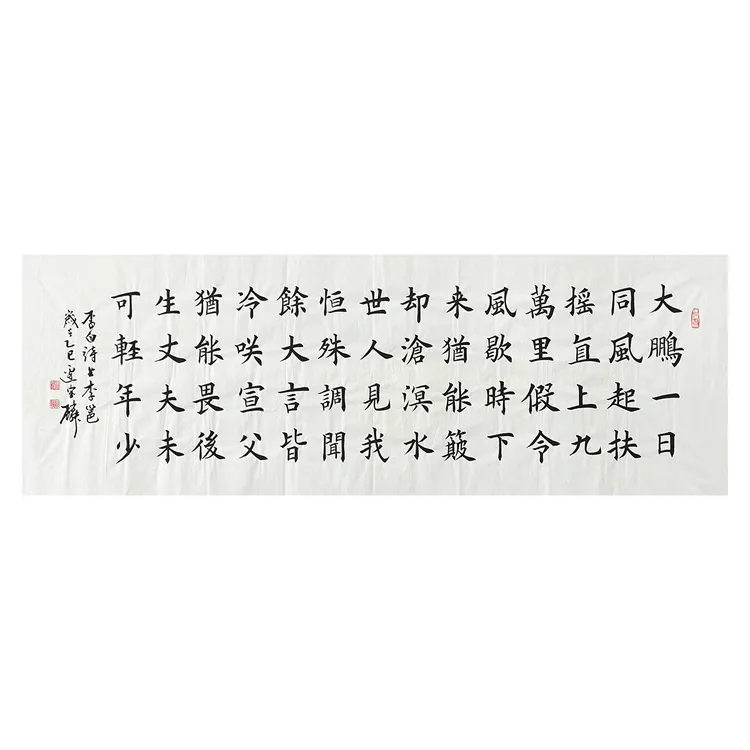 大鵬一日
同風起扶
摇直上九
萬里假令
風歇時下
来猶能簸
却滄溟水
世人見我
恒殊調聞
餘大言皆
冷咲宣父
猶能畏後
生丈夫未
可軽年少
李白詩上李邕
歲在乙巳